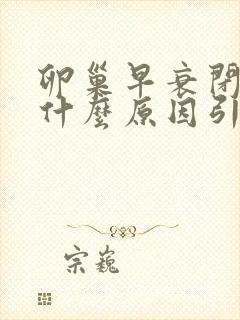 卵巢早衰閉
什麼原因引
宗巍